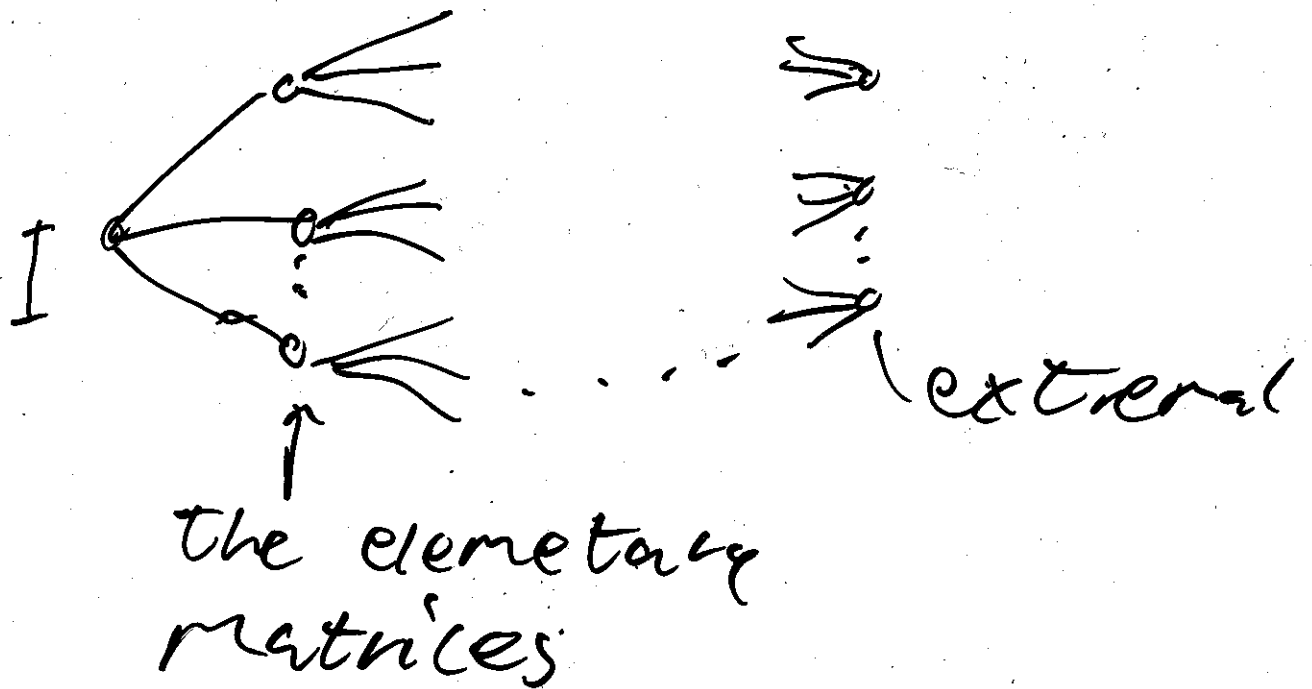 I
extremal
the elemetary
matrices